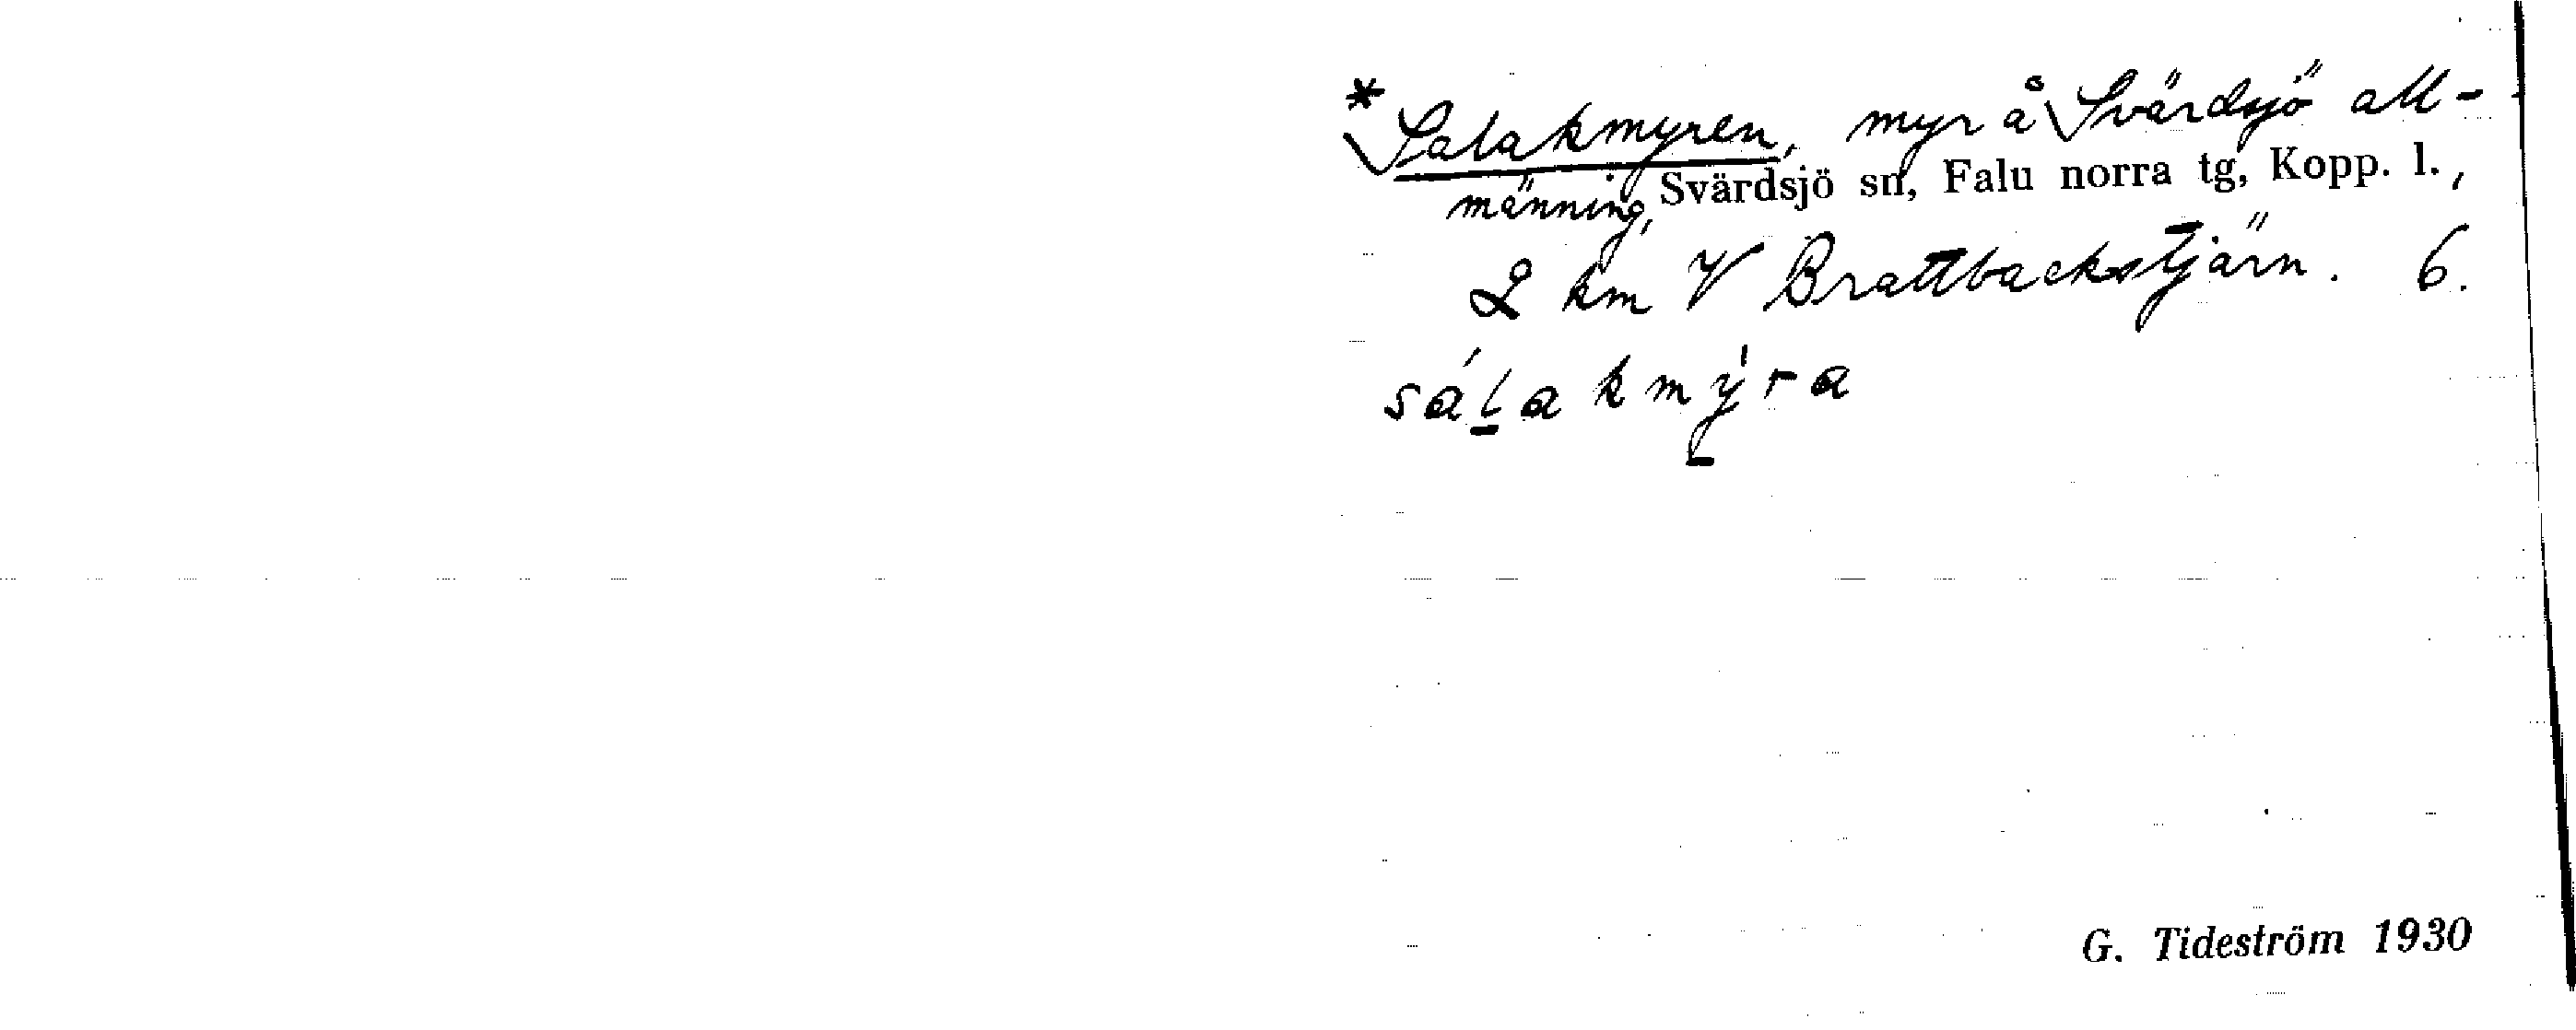 * Salakmyren, myr å Svärdsjö all-
männing, Svärdsjö sn, Falu norra tg, Kopp. l.,
2 km V Brattbackstjärn. 6.
sálakmy̍ra
G. Tideström 1930